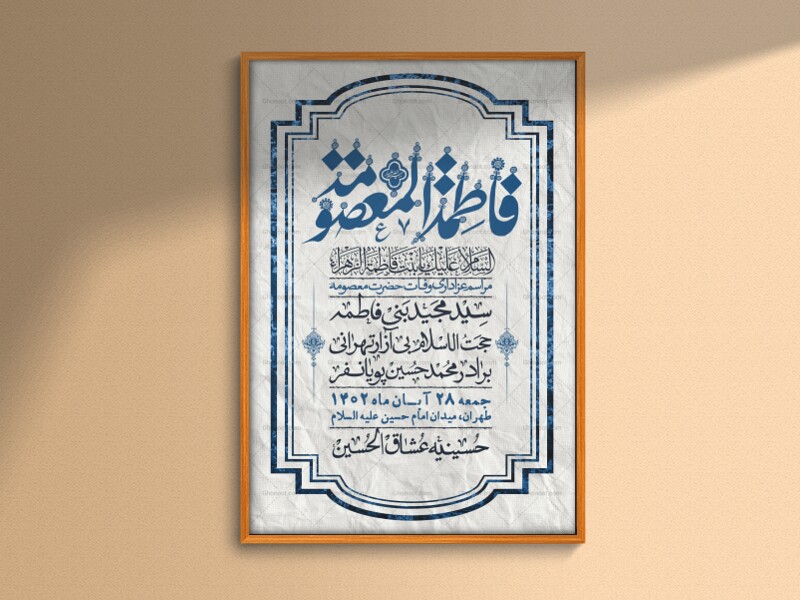 فاطمة المعصومة
السلام علیک یا بنت فاطمة الزهراء
مراسم عزاداری وفات حضرت معصومه
سید مجید بنی فاطمه
حجت الاسلام بی آزار تهرانی
برادر محمد حسین پویانفر
جمعه ۲۸ آبان ماه ۱۴۰۲
طهران، میدان امام حسین علیه السلام
حسینیه عشاق الحسین